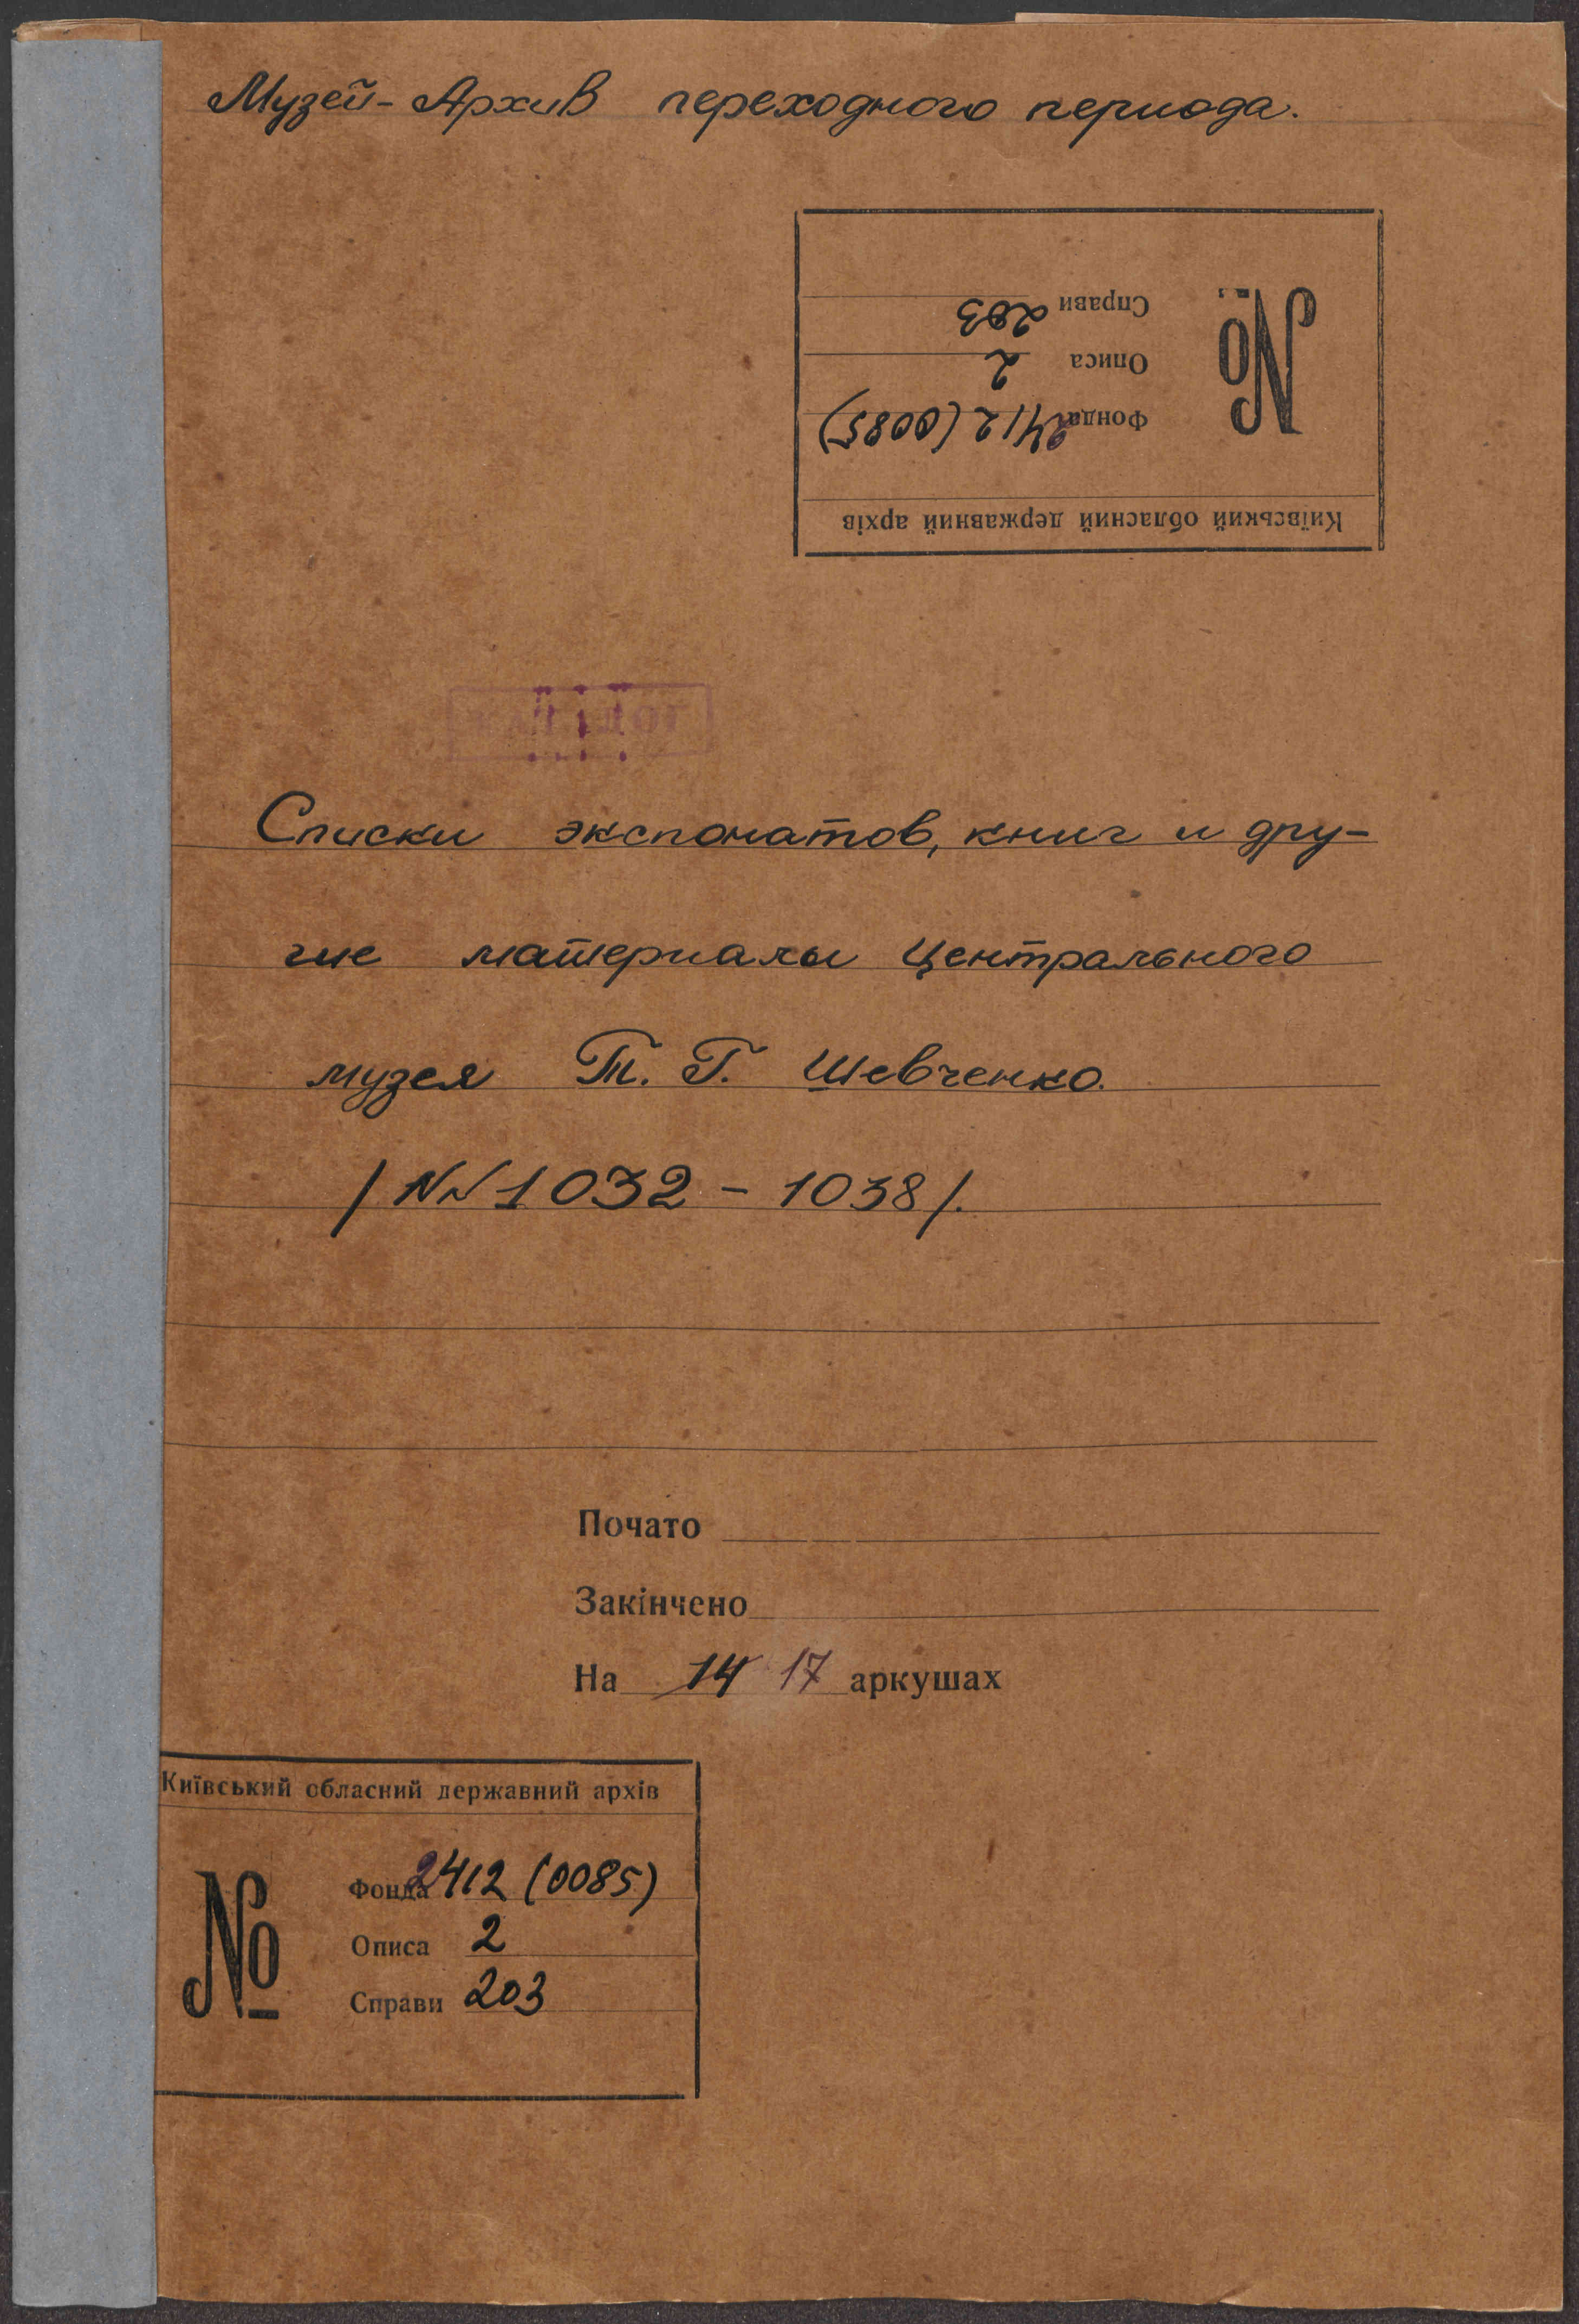 Музей-Архив переходного периода.
Київський обласний державний архів
№
Фонда 2412 (0085)
Описа 2
Справи 203
Списки экспонатов, книг и дру-
гие материалы Центрального
музея Т. Г. Шевченко.
/NN 1032 - 1038/.
Почато
Закінчено
На 14 17 аркушах
Київський обласний державний архів
№
Фонда 2412 (0085)
Описа 2
Справи 203